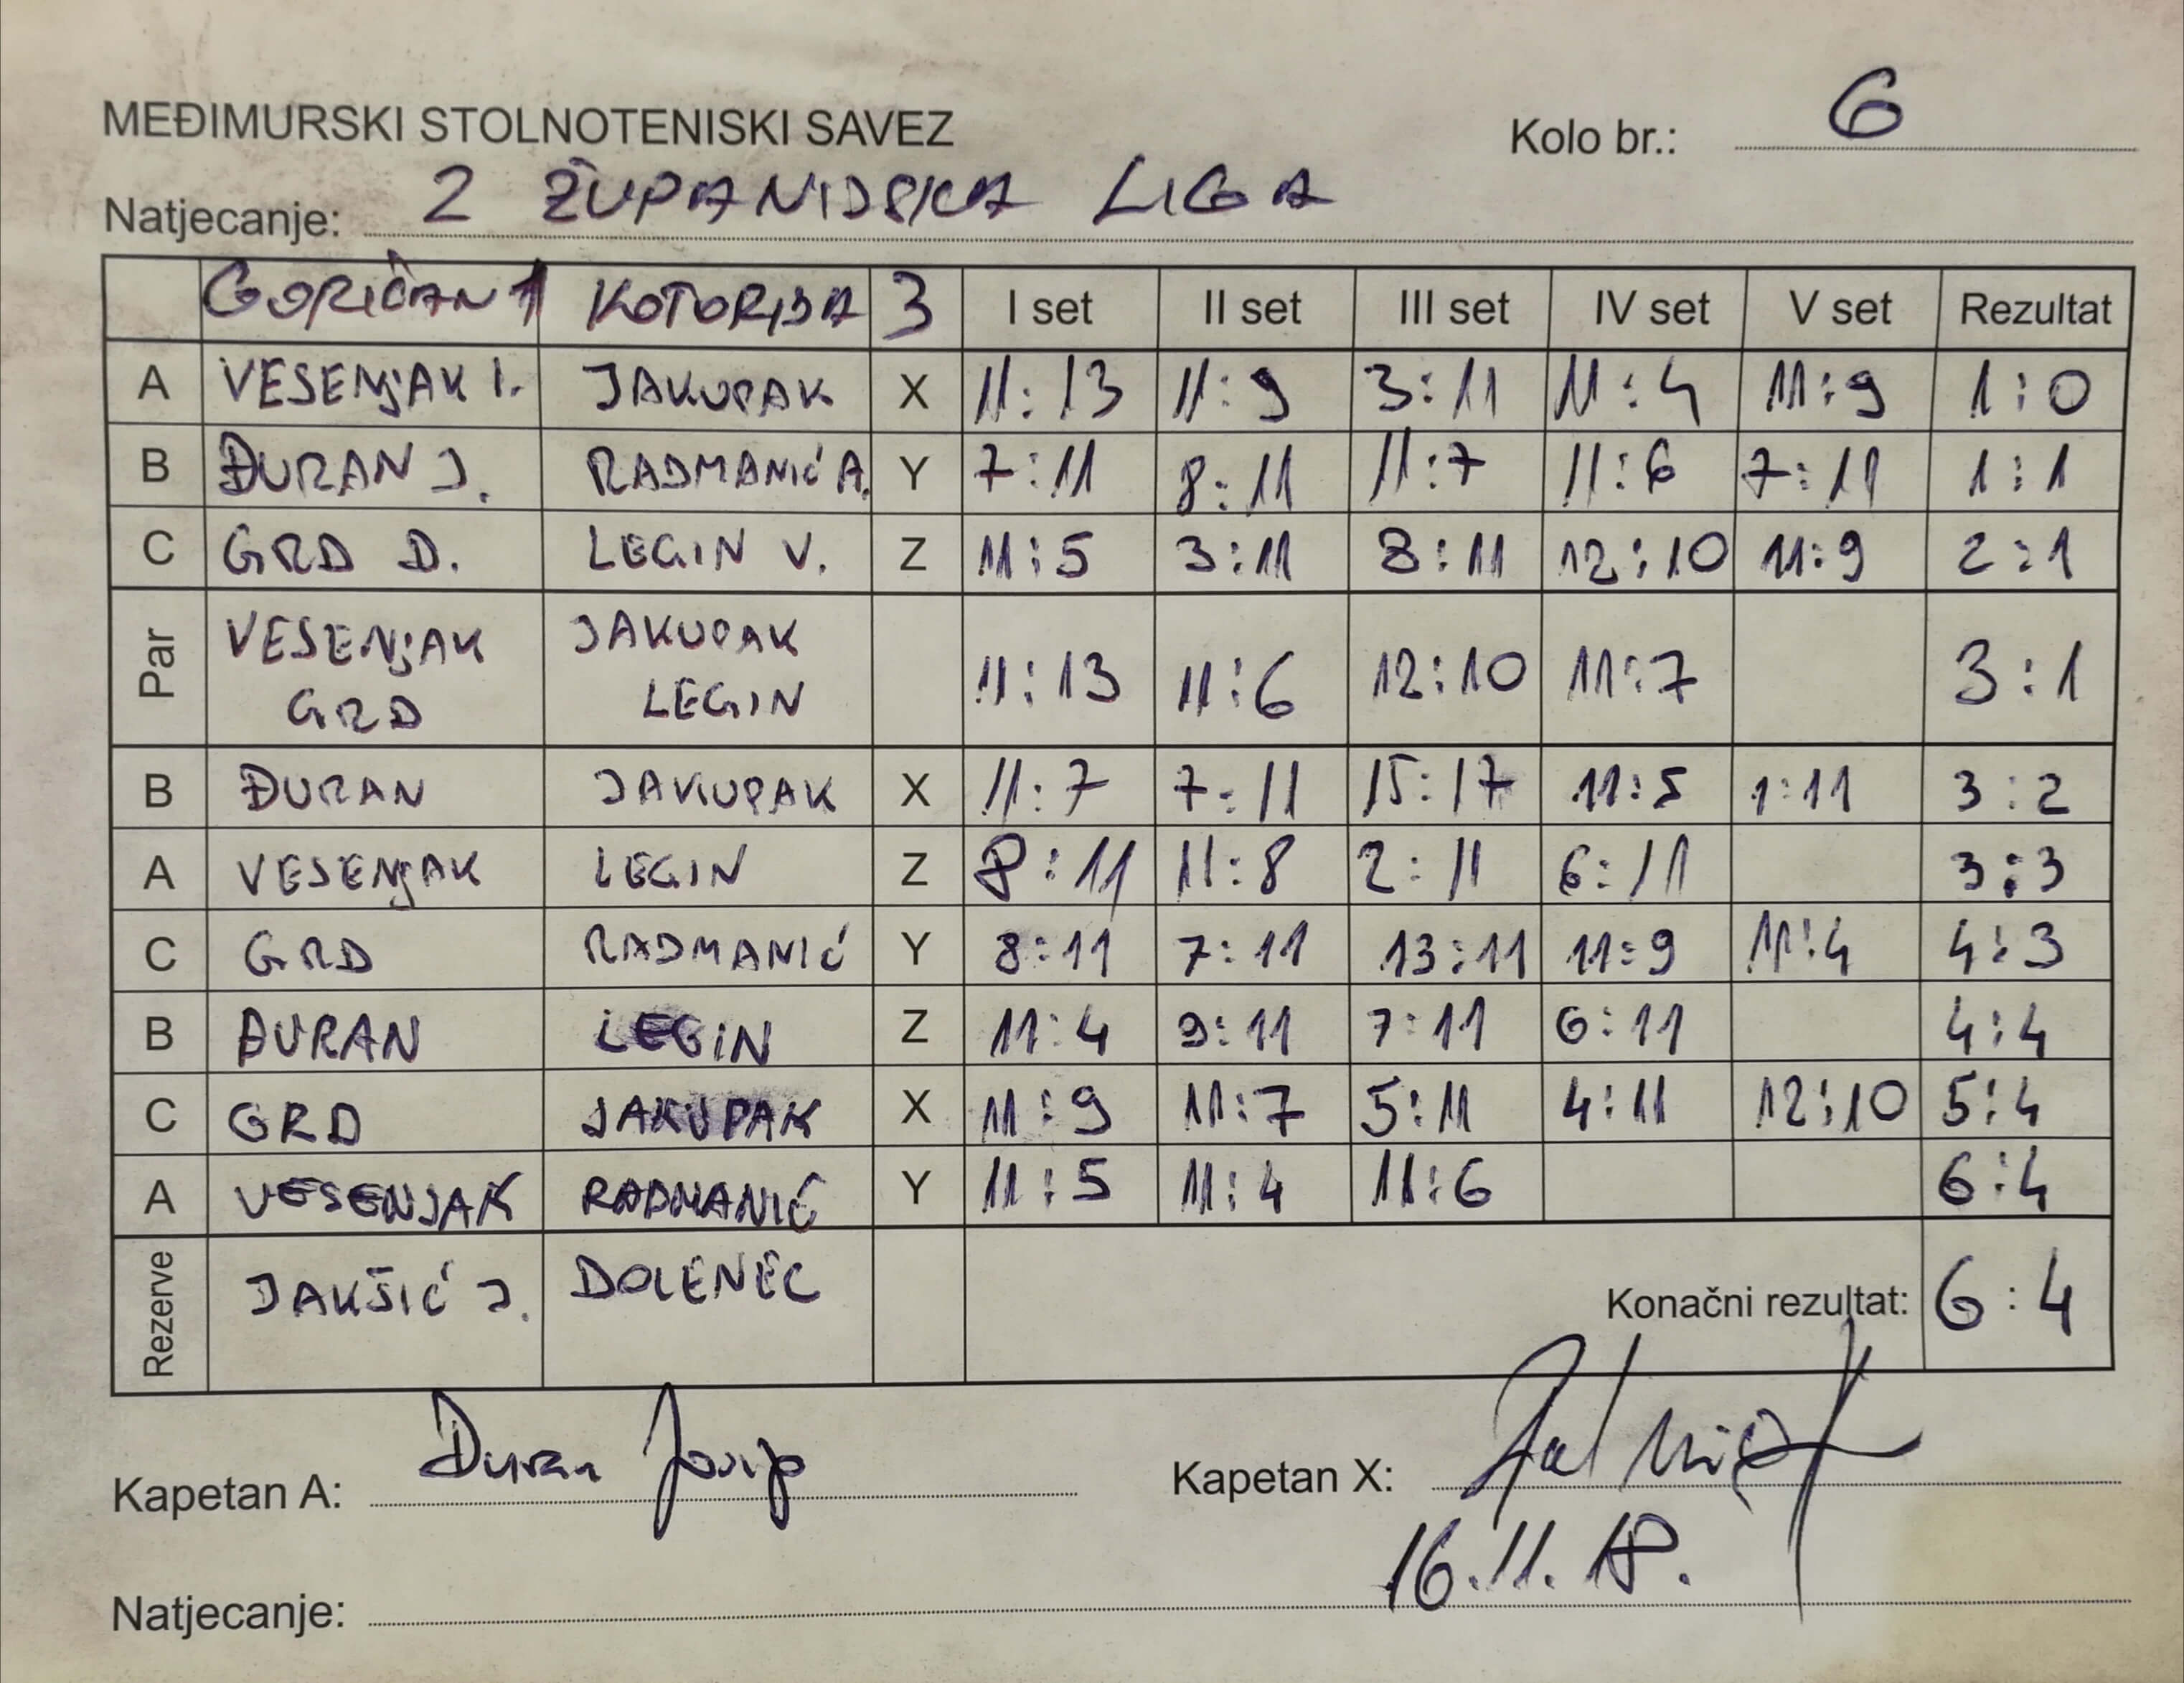 MEĐIMURSKI STOLNOTENISKI SAVEZ Kolo br.: 6
Natjecanje: 2 ŽUPANIJSKA LIGA
GORIČAN 1 KOTORIBA 3 I set II set III set IV set V set Rezultat
A VESENJAK I. JAKUPAK X 11:13 11:9 3:11 11:4 11:9 1:0
B ĐURAN J. RADMANIĆ A. Y 7:11 8:11 11:7 11:6 7:11 1:1
C GRD D. LEGIN V. Z 11:5 3:11 8:11 12:10 11:9 2:1
Par VESENJAK GRD JAKUPAK LEGIN 11:13 11:6 12:10 11:7 3:1
B ĐURAN JAKUPAK X 11:7 7:11 15:17 11:5 1:11 3:2
A VESENJAK LEGIN Z 8:11 11:8 2:11 6:11 3:3
C GRD RADMANIĆ Y 8:11 7:11 13:11 11:9 11:4 4:3
B ĐURAN LEGIN Z 11:4 9:11 7:11 6:11 4:4
C GRD JAKUPAK X 11:9 11:7 5:11 4:11 12:10 5:4
A VESENJAK RADMANIĆ Y 11:5 11:4 11:6 6:4
Rezerve JAKŠIĆ J. DOLENEC Konačni rezultat: 6:4
Kapetan A: Đuran Josip Kapetan X:
16.11.18.
Natjecanje: